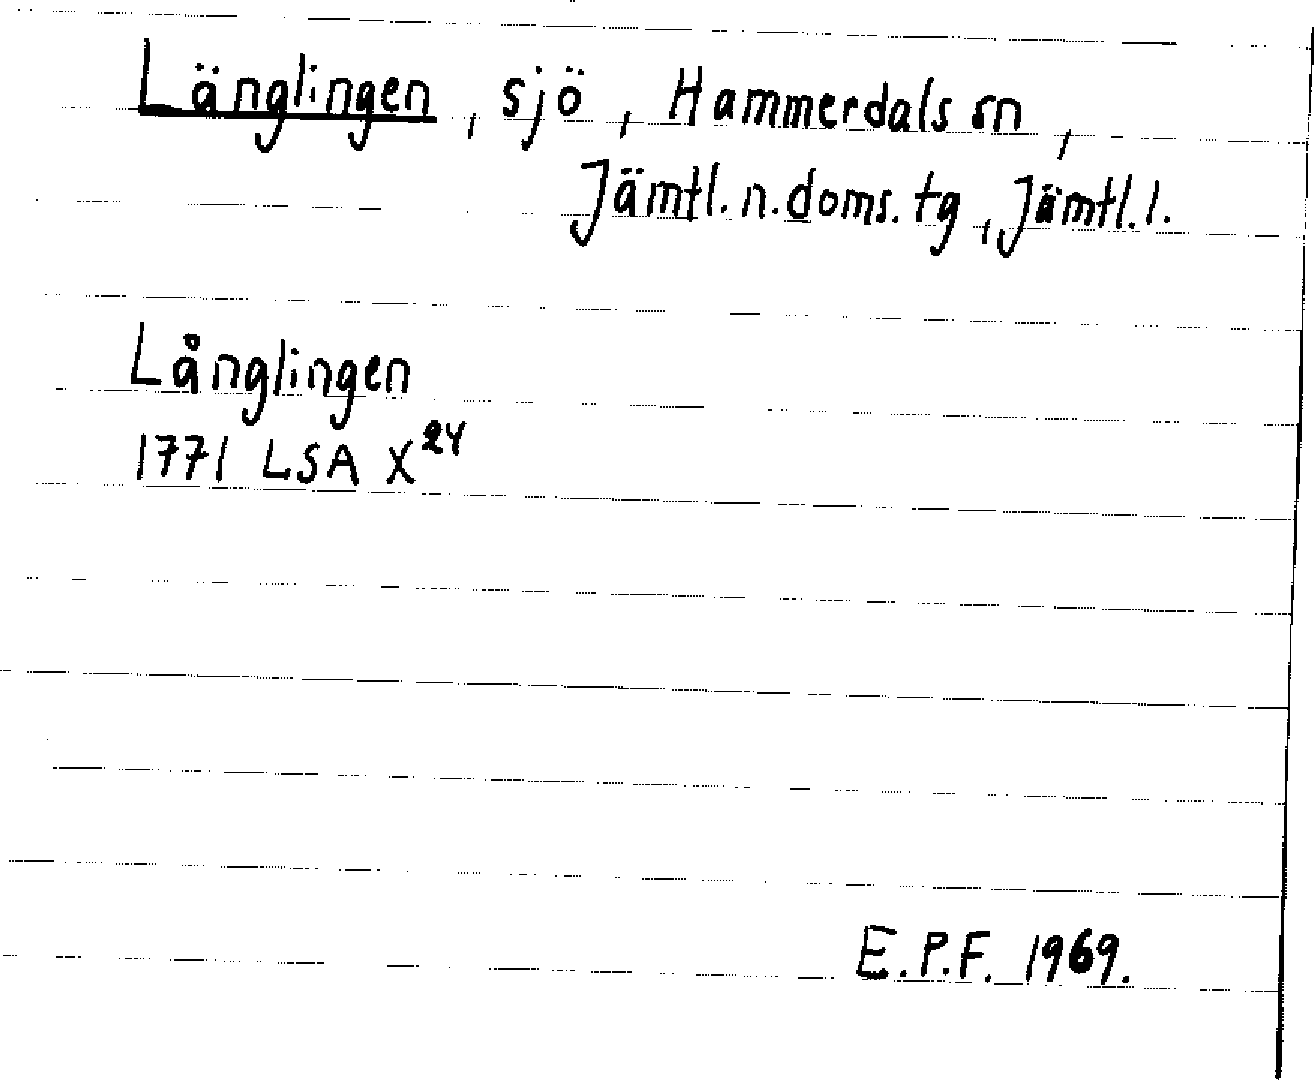 Länglingen, sjö, Hammerdals sn,
Jämtl. n. doms. tg, Jämtl. l.
Långlingen
1771 LSA X²⁴
E.P.F. 1969.